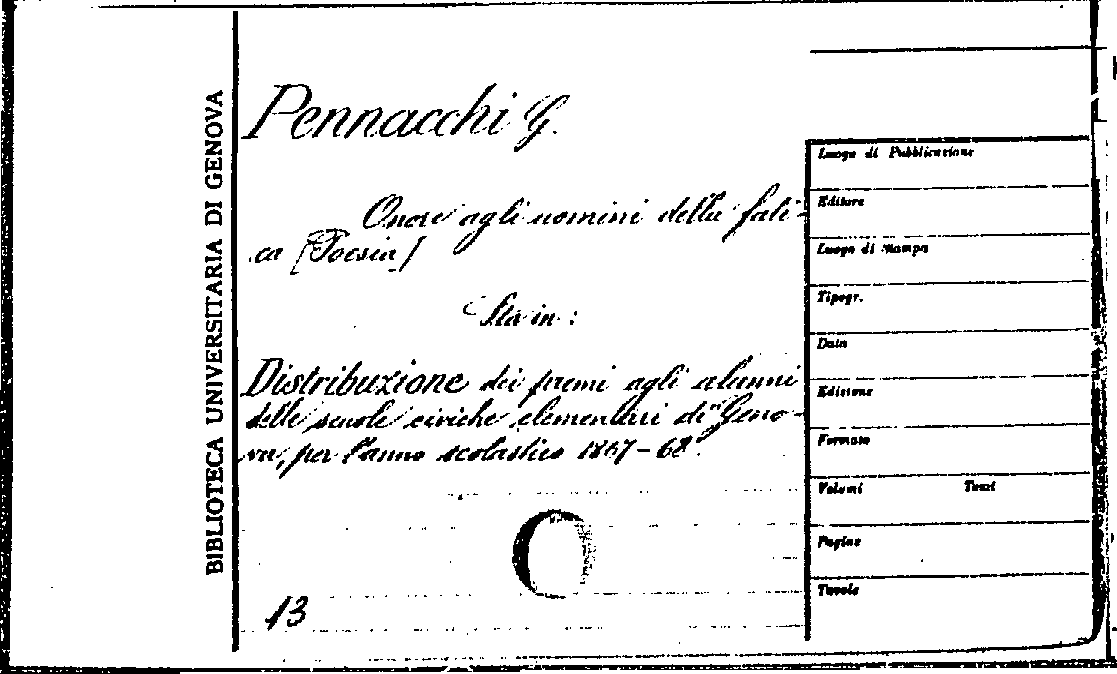 BIBLIOTECA UNIVERSITARIA DI GENOVA
Pennacchi G.
Onore agli uomini della fati-
ca [Poesia]
Sta in:
Distribuzione dei premi agli alunni
delle scuole civiche elementari di Geno-
va, per l'anno scolastico 1867-68.
13
Luogo di Pubblicazione
Editore
Luogo di Stampa
Tipogr.
Data
Edizione
Formato
Volumi Tomi
Pagine
Tavole